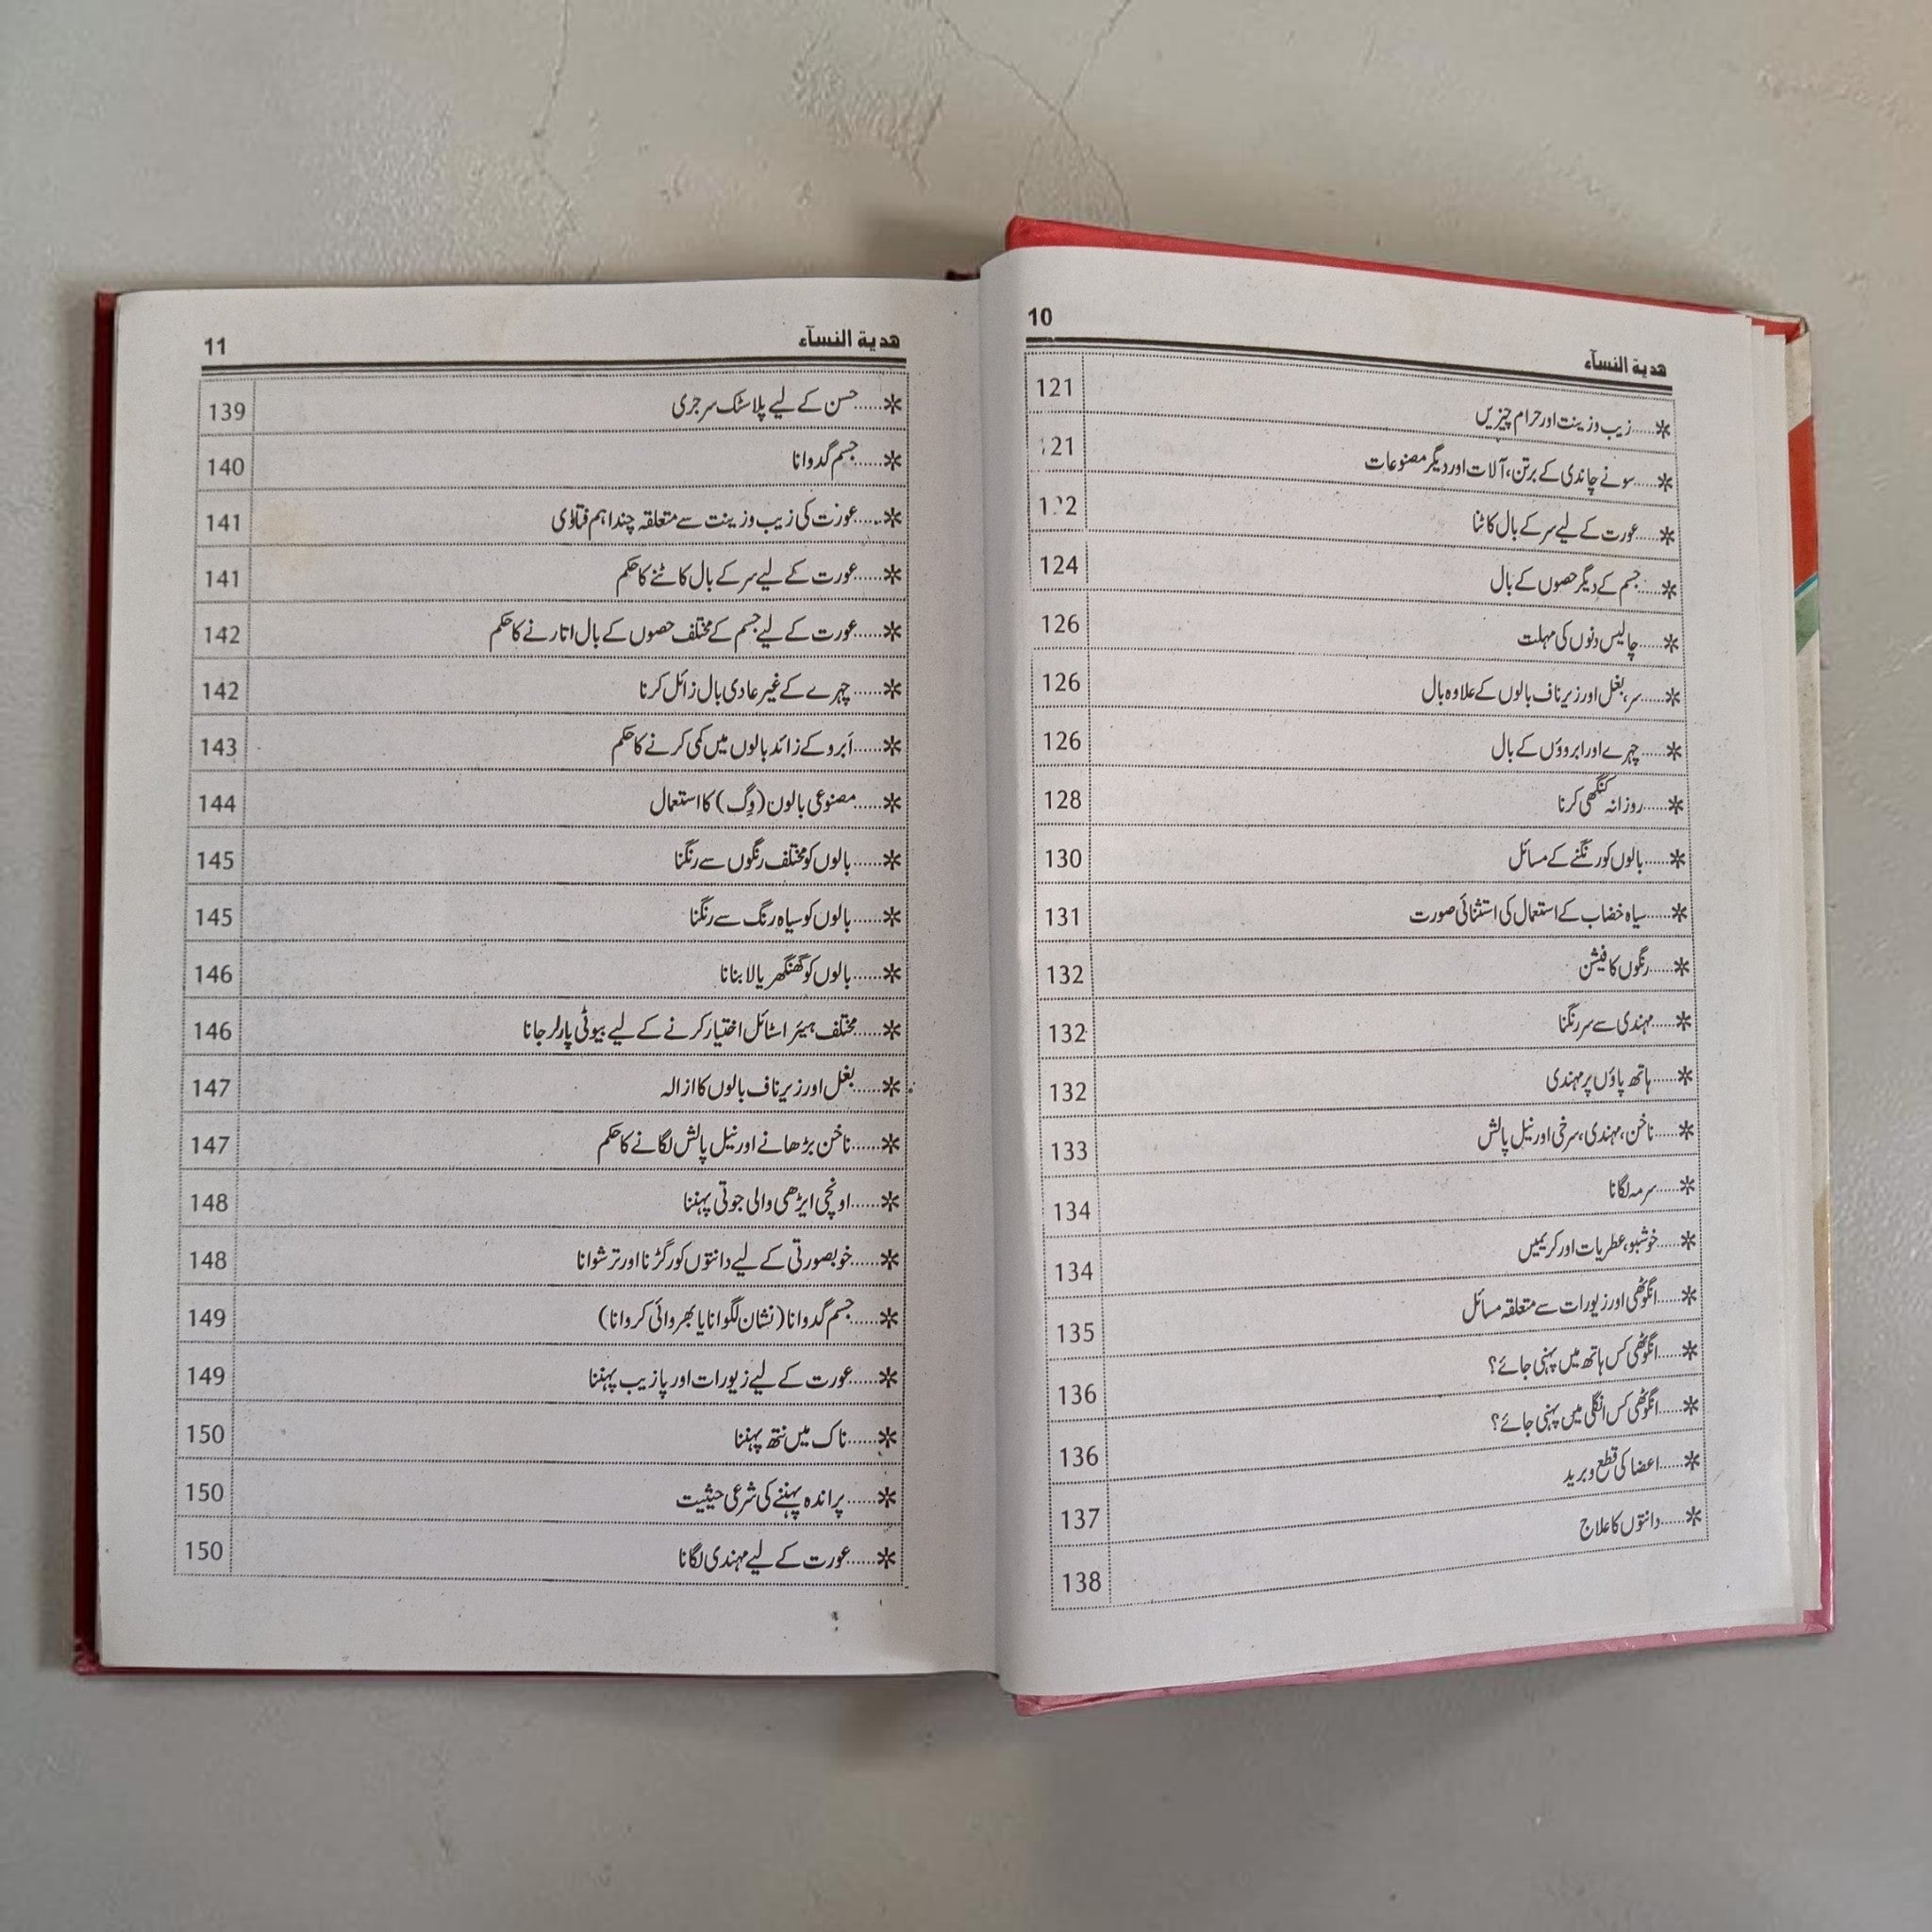 هدية النسآء 10
✻.....زیب وزینت اور حرام چیزیں 121
✻.....سونے چاندی کے برتن، آلات اور دیگر مصنوعات 121
✻.....عورت کے لیے سر کے بال کاٹنا 122
✻.....جسم کے دیگر حصوں کے بال 124
✻.....چالیس دنوں کی مہلت 126
✻.....سر، بغل اور زیر ناف بالوں کے علاوہ بال 126
✻.....چہرے اور ابروؤں کے بال 126
✻.....روزانہ کنگھی کرنا 128
✻.....بالوں کو رنگنے کے مسائل 130
✻.....سیاہ خضاب کے استعمال کی استثنائی صورت 131
✻.....رنگوں کا فیشن 132
✻.....مہندی سے سر رنگنا 132
✻.....ہاتھ پاؤں پر مہندی 132
✻.....ناخن، مہندی، سرخی اور نیل پالش 133
✻.....سرمہ لگانا 134
✻.....خوشبو، عطریات اور کریمیں 134
✻.....انگوٹھی اور زیورات سے متعلقہ مسائل 135
✻.....انگوٹھی کس ہاتھ میں پہنی جائے؟ 136
✻.....انگوٹھی کس انگلی میں پہنی جائے؟ 136
✻.....اعضا کی قطع و برید 137
✻.....دانتوں کا علاج 138
هدية النسآء 11
✻.....حسن کے لیے پلاسٹک سرجری 139
✻.....جسم گدوانا 140
✻.....عورت کی زیب وزینت سے متعلقہ چند اہم فتاوٰی 141
✻.....عورت کے لیے سر کے بال کاٹنے کا حکم 141
✻.....عورت کے لیے جسم کے مختلف حصوں کے بال اتارنے کا حکم 142
✻.....چہرے کے غیر عادی بال زائل کرنا 142
✻.....اَبرو کے زائد بالوں میں کمی کرنے کا حکم 143
✻.....مصنوعی بالون (وِگ) کا استعمال 144
✻.....بالوں کو مختلف رنگوں سے رنگنا 145
✻.....بالوں کو سیاہ رنگ سے رنگنا 145
✻.....بالوں کو گھنگھریالا بنانا 146
✻.....مختلف ہیئر اسٹائل اختیار کرنے کے لیے بیوٹی پارلر جانا 146
✻.....بغل اور زیر ناف بالوں کا ازالہ 147
✻.....ناخن بڑھانے اور نیل پالش لگانے کا حکم 147
✻.....اونچی ایڑھی والی جوتی پہننا 148
✻.....خوبصورتی کے لیے دانتوں کو رگڑنا اور ترشوانا 148
✻.....جسم گدوانا (نشان لگوانا یا بھروائی کروانا) 149
✻.....عورت کے لیے زیورات اور پازیب پہننا 149
✻.....ناک میں نتھ پہننا 150
✻.....پراندہ پہننے کی شرعی حیثیت 150
✻.....عورت کے لیے مہندی لگانا 150